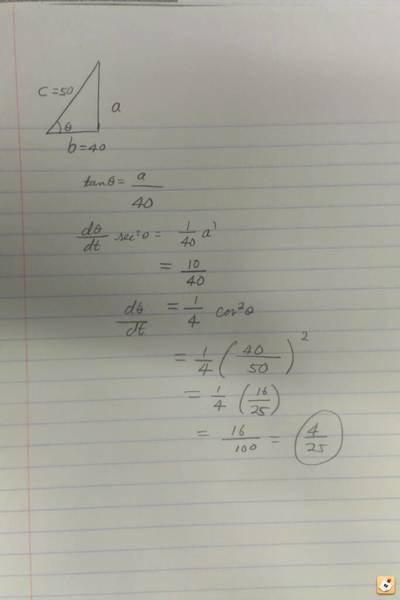 c = 50
a
θ
b = 40
tanθ = a/40
dθ/dt sec²θ = 1/40 a'
= 10/40
dθ/dt = 1/4 cos²θ
= 1/4 (40/50)²
= 1/4 (16/25)
= 16/100 = 4/25